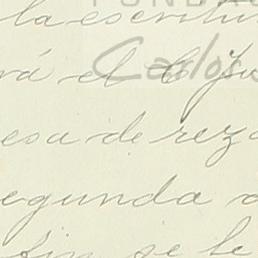 FUNDA
la escritu
rá el Cju
Carlos
esa de reza
egunda a
fin se le